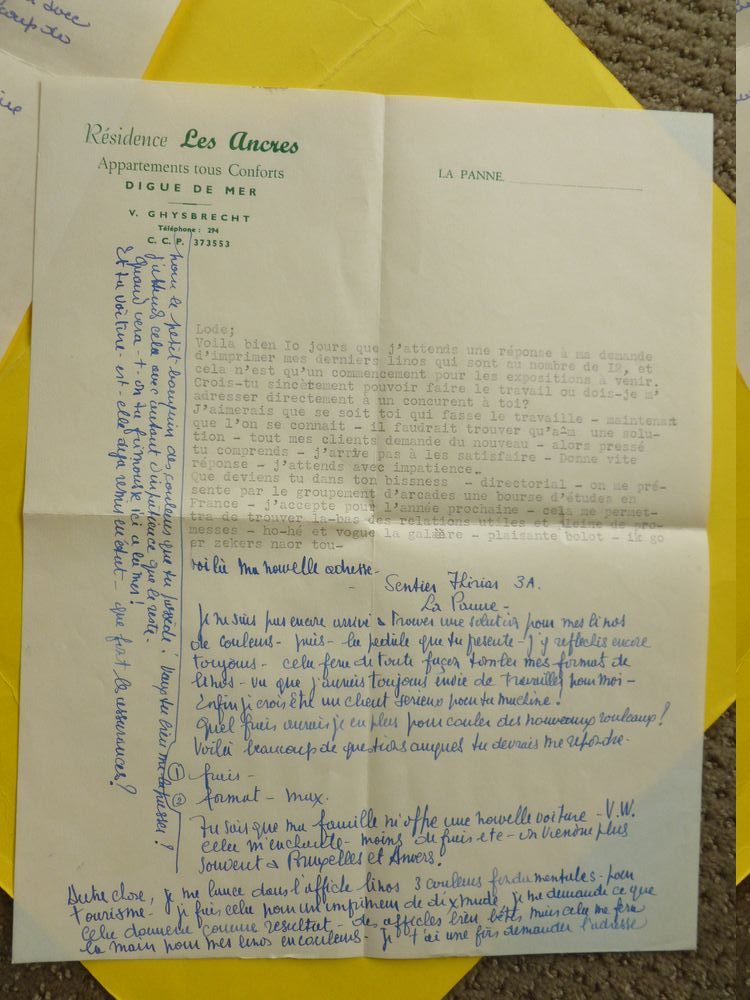 Résidence Les Ancres
Appartements tous Conforts
DIGUE DE MER
V. GHYSBRECHT
Téléphone : 294
C. C. P. 373553
LA PANNE,
Lode;
Voila bien Io jours que j'attends une réponse à ma demande
d'imprimer mes derniers linos qui sont au nombre de I2, et
cela n'est qu'un commencement pour les expositions à venir.
Crois-tu sincètement pouvoir faire le travail ou dois-je m'
adresser directement à un concurent à toi?
J'aimerais que se soit toi qui fasse le travaille - maintenant
que l'on se connait - il faudrait trouver qu'a^m une solu-
tion - tout mes clients demande du nouveau - alors pressé
tu comprends - j'arrive pas à les satisfaire - Donne vite
réponse - j'attends avec impatience.
Que deviens tu dans ton bissness - directorial - on me pré-
sente par le groupement d'arcades une bourse d'études en
France - j'accepte pour l'année prochaine - cela me permet-
tra de trouver la-bas des relations utiles et pleine de pro-
messes - ho-hé et vogue la galère - plaisante bolot - ik go
er zekers naor tou-
voilà ma nouvelle adresse -
Sentier 3A.
La Panne -
Je ne suis pas encore arrivé à trouver une solution pour mes linos
de couleurs - puis - la pédale que tu presente - j'y reflechis encore
toujours - cela fera de toute façon tomber mes format de
linos - vu que j'aurais toujours envie de travailler pour moi -
Enfin je crois être un client serieux pour ta machine!
Quel frais aurais je en plus pour couler des nouveaux rouleaux?
Voilà beaucoup de questions auxques tu devrais me repondre -
frais -
format - max.
Tu sais que ma famille m'offre une nouvelle voiture - V.W.
celu m'enchante - moins de frais ete - on viendra plus
souvent à Bruxelles et Anvers!
Autre chose, je me lance dans l'affiche linos 3 couleurs fondamentales - pour
tourisme - je fais celu pour un imprimeur de dixmude, je me demande ce que
celu donnera comme resultat - des affiches bien bêtes mais celu me fera
la main pour mes linos en couleurs - je t'ai une fois demander l'adresse
pour le petit bouquin des couleurs que tu possède! veux tu bien me le passer?
j'attends cela avec autant d'impatience que le reste -
Quand vera-t-on ta frimousse ici a la mer!
Et ta voiture - est-elle deja remis en etat - que font les assurances?